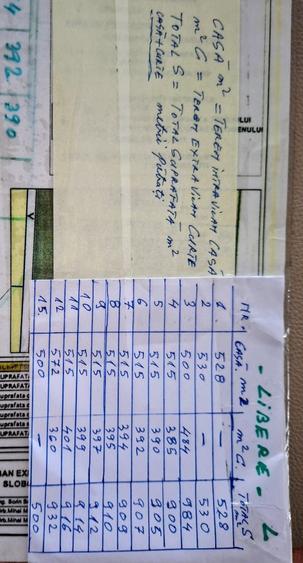 CASĂ m² = TEREN INTRAVILAN CASĂ
m² C = TEREN EXTRAVILAN CURTE
TOTAL S = TOTAL SUPRAFAȚĂ m²
CASĂ+CURTE metri pătrați
4 392 390
- LIBERE - L
NR. CASĂ m2 m² C TOTAL S
1 528 — 528
2 530 — 530
3 500 484 984
4 515 385 900
5 515 390 905
6 515 392 907
7 515 394 909
8 515 395 910
9 515 397 912
10 515 399 914
11 515 401 916
12 572 360 932
15 500 — 500
UPRAFATA
UPRAFATA
uprafata
uprafata
uprafata
Suprafata
AN EX
SLOB
ing. Sorin
Arh. Mihai M
Arh. Mihai M